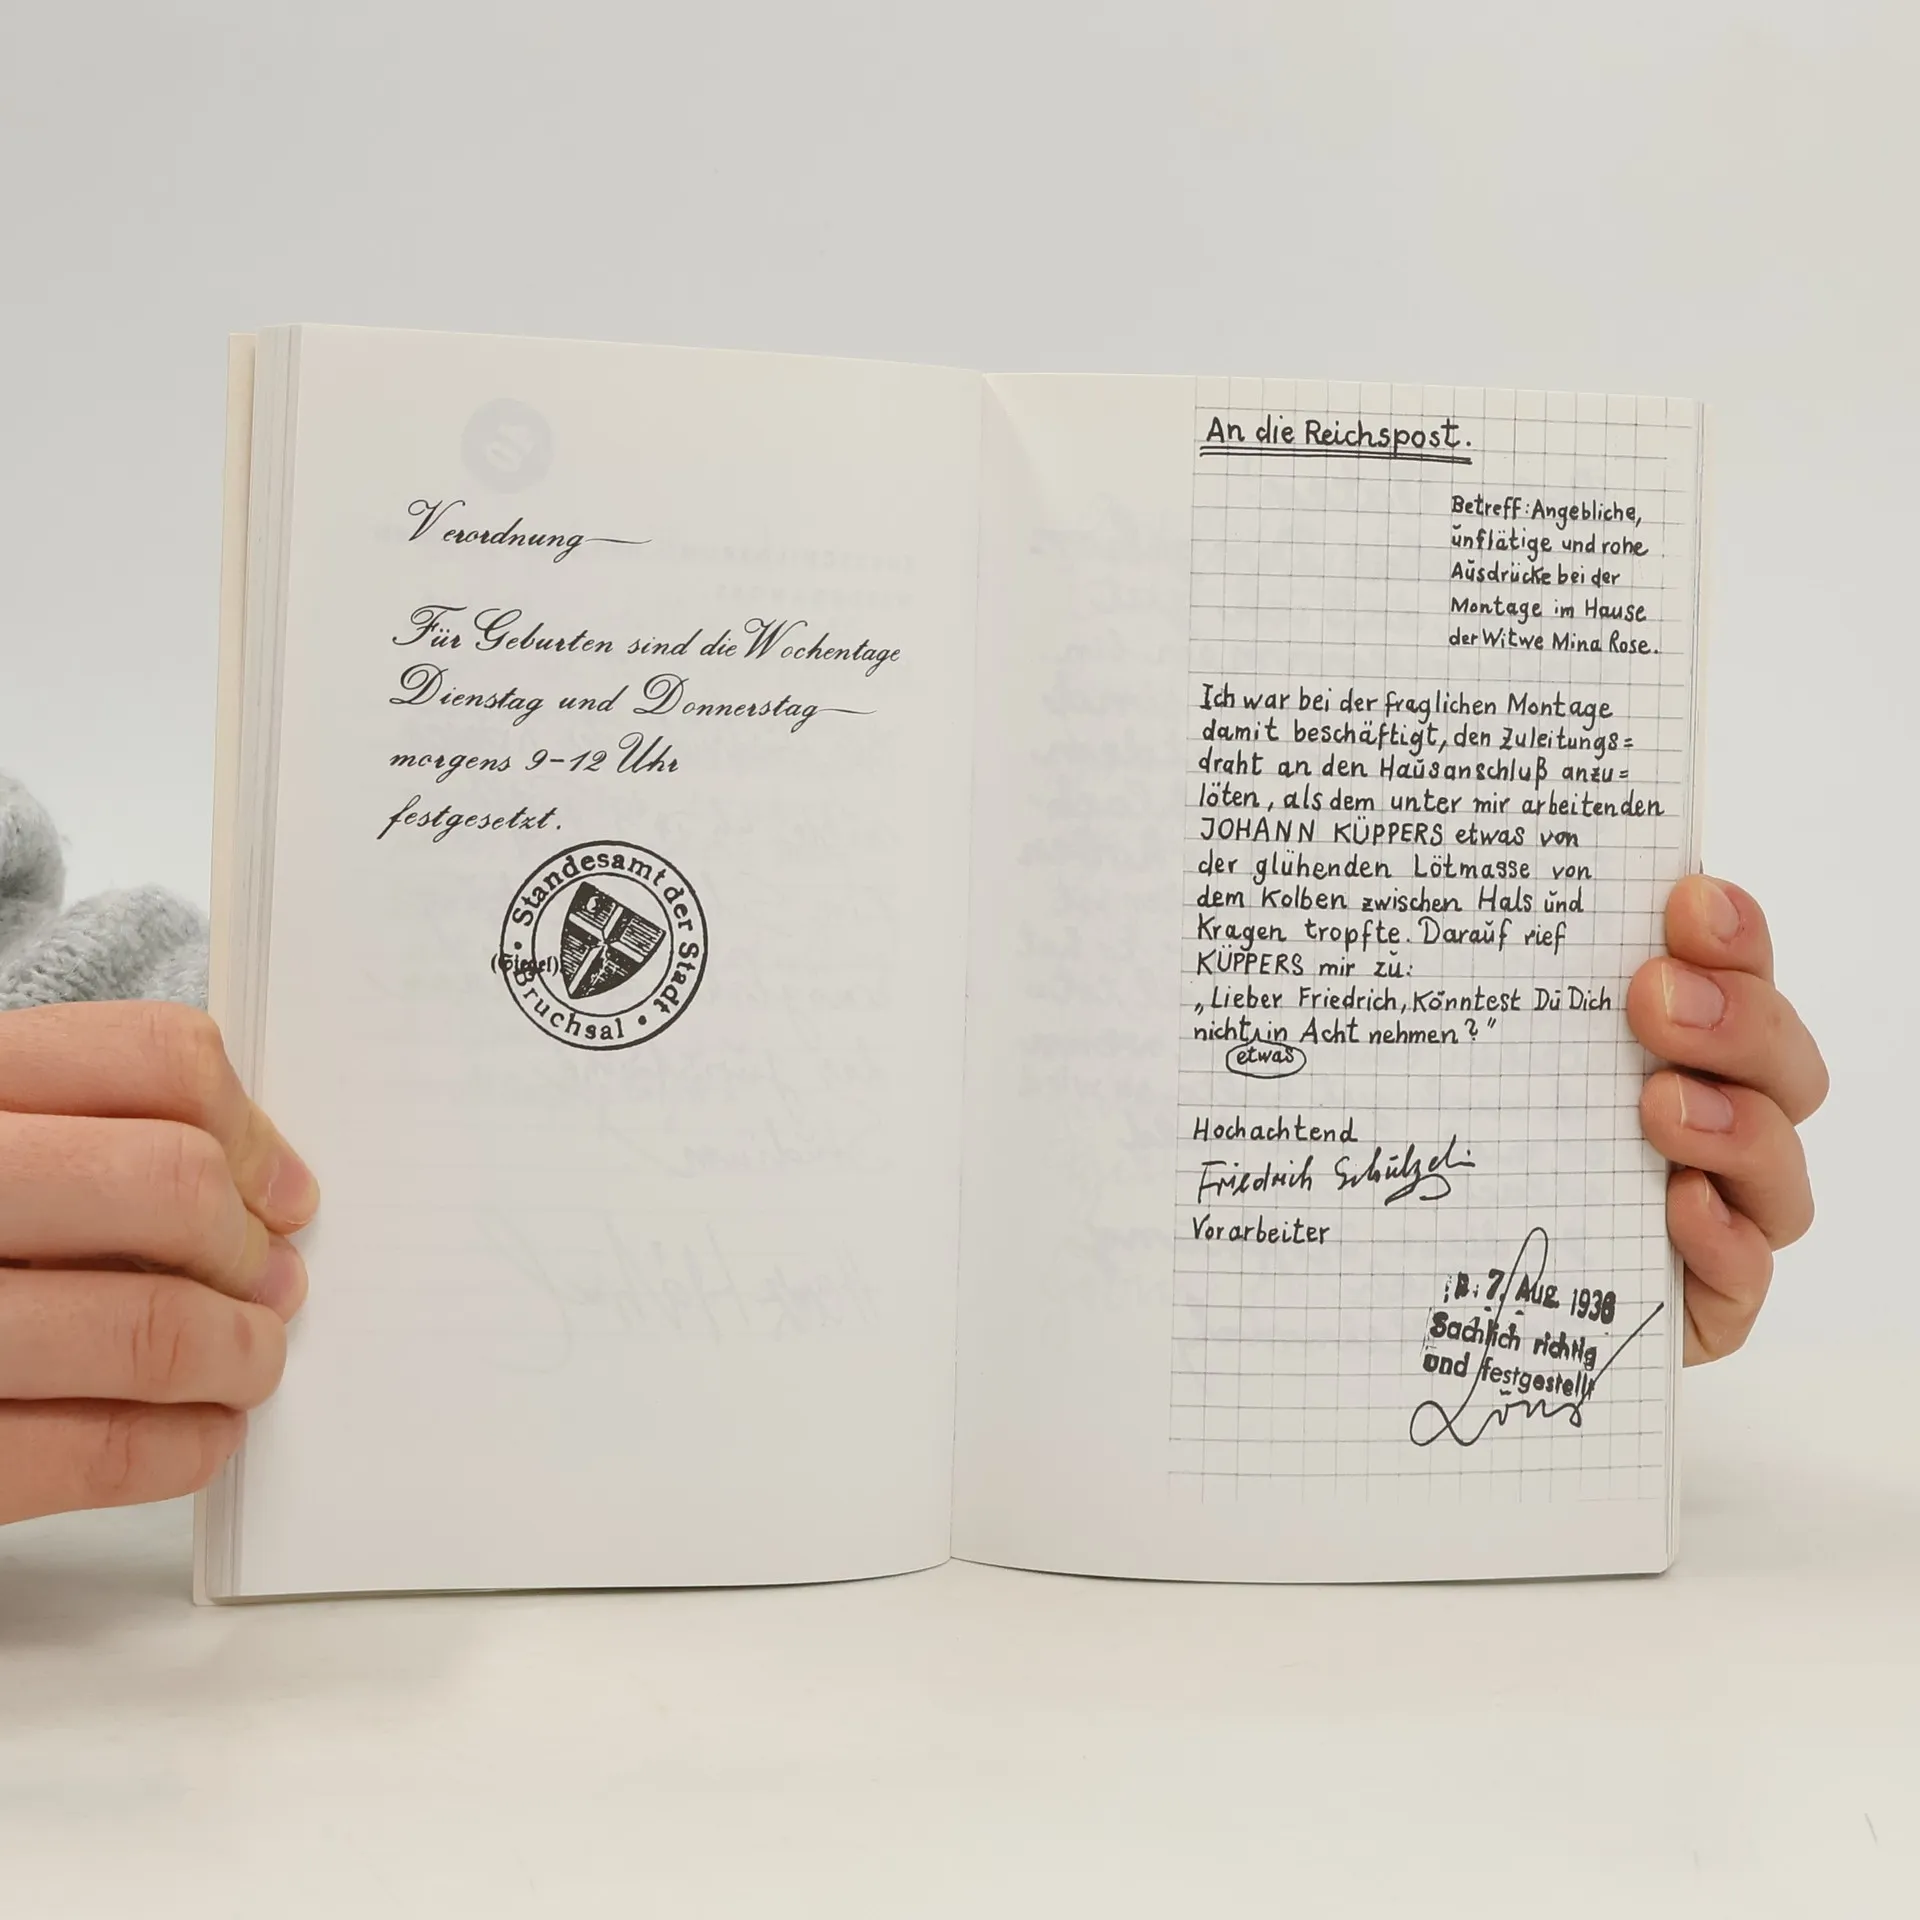 Verordnung
Für Geburten sind die Wochentage
Dienstag und Donnerstag
morgens 9-12 Uhr
festgesetzt.
Standesamt der Stadt
(Siegel)
Bruchsal
An die Reichspost.
Betreff: Angebliche,
unflätige und rohe
Ausdrücke bei der
Montage im Hause
der Witwe Mina Rose.
Ich war bei der fraglichen Montage
damit beschäftigt, den Zuleitungs=
draht an den Hausanschluß anzu=
löten, als dem unter mir arbeitenden
JOHANN KÜPPERS etwas von
der glühenden Lötmasse von
dem Kolben zwischen Hals und
Kragen tropfte. Darauf rief
KÜPPERS mir zu:
„Lieber Friedrich, könntest Du Dich
nicht in Acht nehmen?"
etwas
Hochachtend
Friedrich
Vorarbeiter
7. Aug. 1938
Sachlich richtig
und festgestellt
Löns